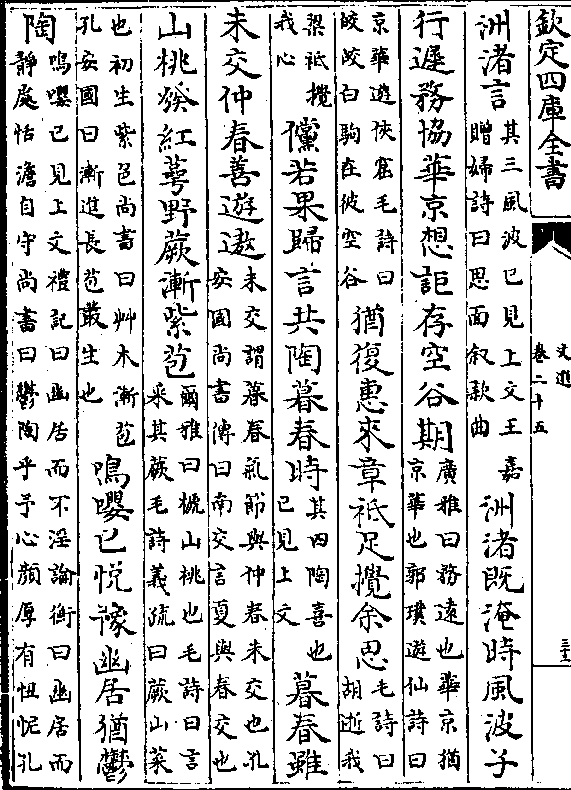 欽定四庫全書
文選
卷二十五
洲渚言
其三風波已見上文王嘉
贈婦詩曰思面叙款曲
洲渚既淹時風波子
行遲務協華京想詎存空谷期
廣雅曰務遠也華京猶
京華也郭璞遊仙詩曰
京華遊俠窟毛詩曰
皎皎白駒在彼空谷
猶復惠來章祗足攪余思
毛詩曰
胡逝我
梁祗攪
我心
儻若果歸言共陶暮春時
其四陶喜也
已見上文
暮春雖
未交仲春善遊遨
未交謂暮春氣節與仲春未交也孔
安國尚書傳曰南交言夏與春交也
山桃發紅萼野蕨漸紫苞
爾雅曰榹山桃也毛詩曰言
采其蕨毛詩義疏曰蕨山菜
也初生紫色尚書曰艸木漸苞
孔安國曰漸進長苞叢生也
鳴嚶已悅豫幽居猶鬱
陶
鳴嚶已見上文禮記曰幽居而不淫論衡曰幽居而
靜處恬澹自守尚書曰鬱陶乎予心顏厚有忸怩孔